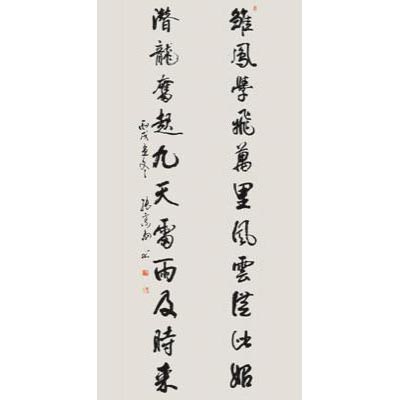 雏鳳學飛萬里風雲從此始
潛龍奮起九天雷雨及時來
丙戌立冬